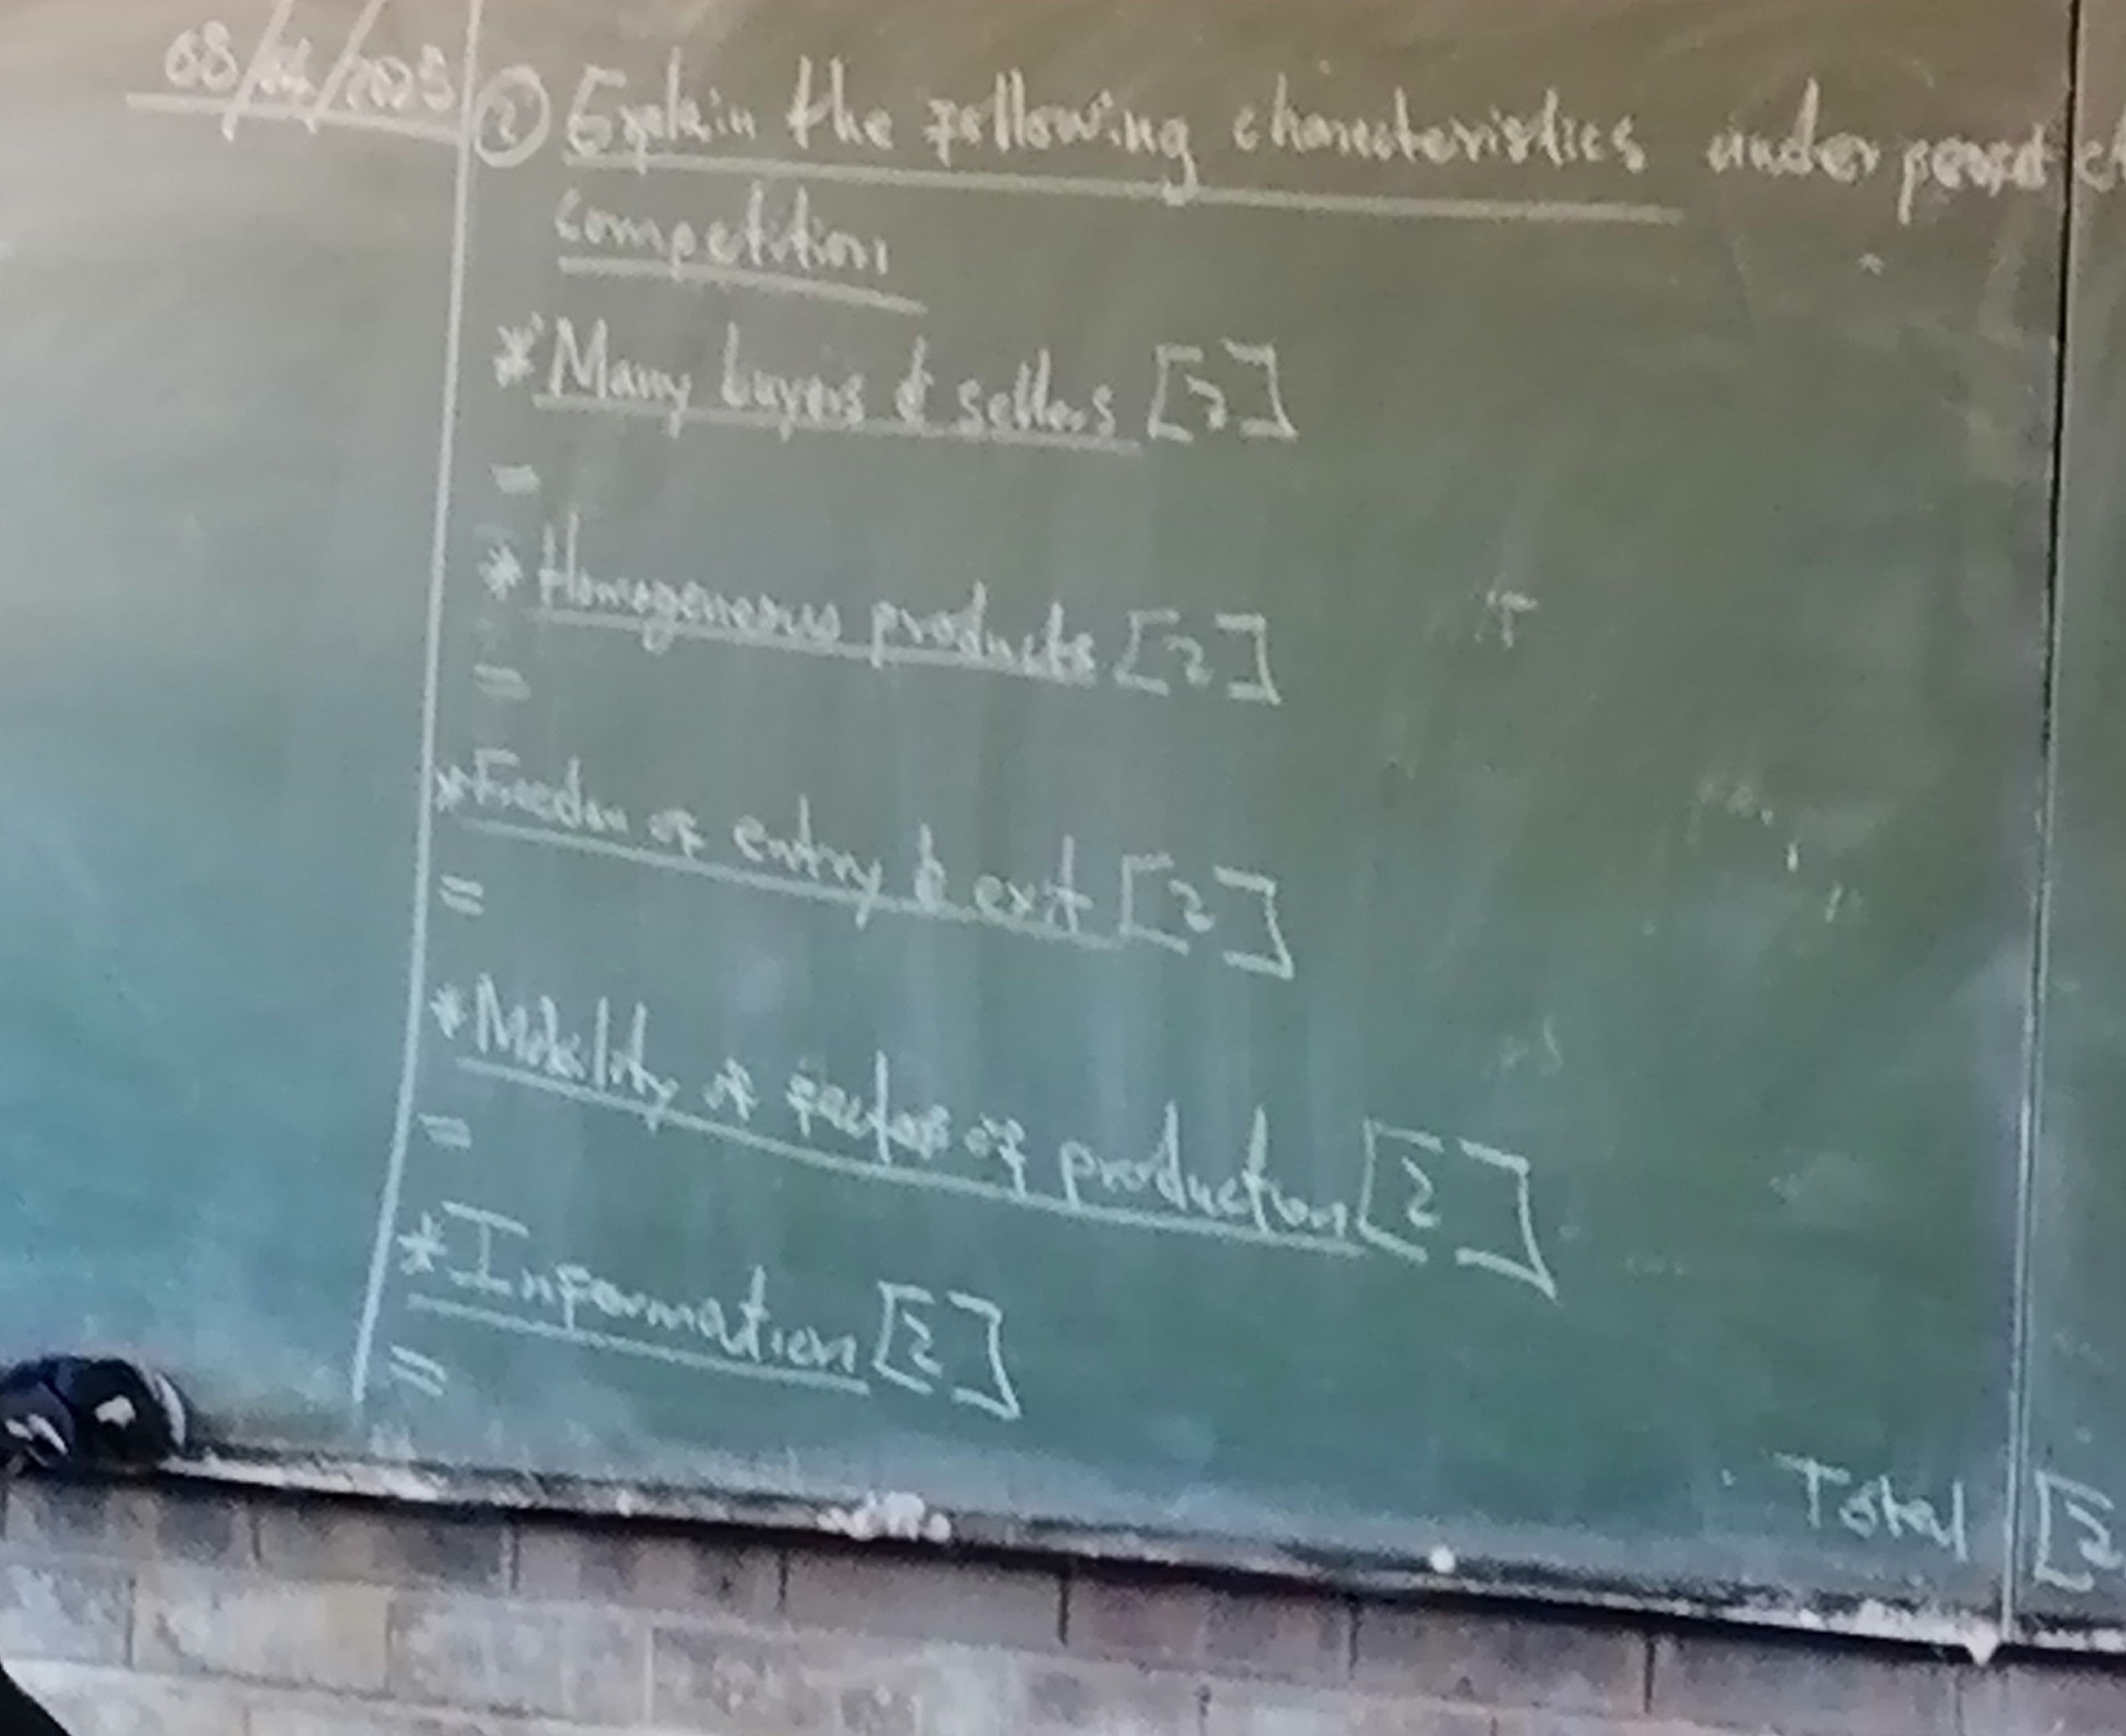 ② Explain the following characteristics under
competition
* Many buyers & sellers [2]
=
* Homogeneous products [2]
=
* Freedom of entry & exit [2]
=
* Mobility of factor of production [2]
=
* Information [2]
=
Total [